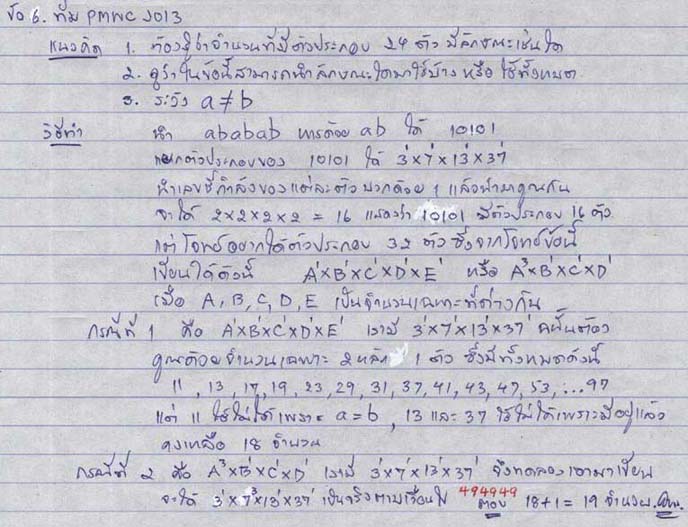 ข้อ 6. ทีม PMWC 2013
แนวคิด 1. ต้องรู้ว่าจำนวนที่มีตัวประกอบ 24 ตัว มีลักษณะเช่นใด
2. ดูว่าในข้อนี้สามารถนำลักษณะใดมาใช้บ้าง หรือ ใช้ทั้งหมด
3. ระวัง a ≠ b
วิธีทำ นำ ababab หารด้วย ab ได้ 10101
แยกตัวประกอบของ 10101 ได้ 3¹×7¹×13¹×37¹
นำเลขชี้กำลังของแต่ละตัว บวกด้วย 1 แล้วนำมาคูณกัน
จะได้ 2×2×2×2 = 16 แสดงว่า 10101 มีตัวประกอบ 16 ตัว
แต่ โจทย์อยากได้ตัวประกอบ 32 ตัว ซึ่งจากโจทย์ข้อนี้
เขียนได้ดังนี้ A¹×B¹×C¹×D¹×E¹ หรือ A³×B¹×C¹×D¹
เมื่อ A, B, C, D, E เป็นจำนวนเฉพาะที่ต่างกัน
กรณีที่ 1 คือ A¹×B¹×C¹×D¹×E¹ เรามี 3¹×7¹×13¹×37¹ ฉะนั้นต้อง
คูณด้วยจำนวนเฉพาะ 2 หลัก 1 ตัว ซึ่งมีทั้งหมดดังนี้
11, 13, 17, 19, 23, 29, 31, 37, 41, 43, 47, 53, ...97
แต่ 11 ใช้ไม่ได้เพราะ a = b, 13 และ 37 ใช้ไม่ได้เพราะมีอยู่แล้ว
คงเหลือ 18 จำนวน
กรณีที่ 2 คือ A³×B¹×C¹×D¹ เรามี 3¹×7¹×13¹×37¹ จึงทดลองเอามาเขียน
จะได้ 3¹×7³×13¹×37¹ เป็นจริงตามเงื่อนไข 494949 ตอบ 18+1 = 19 จำนวน